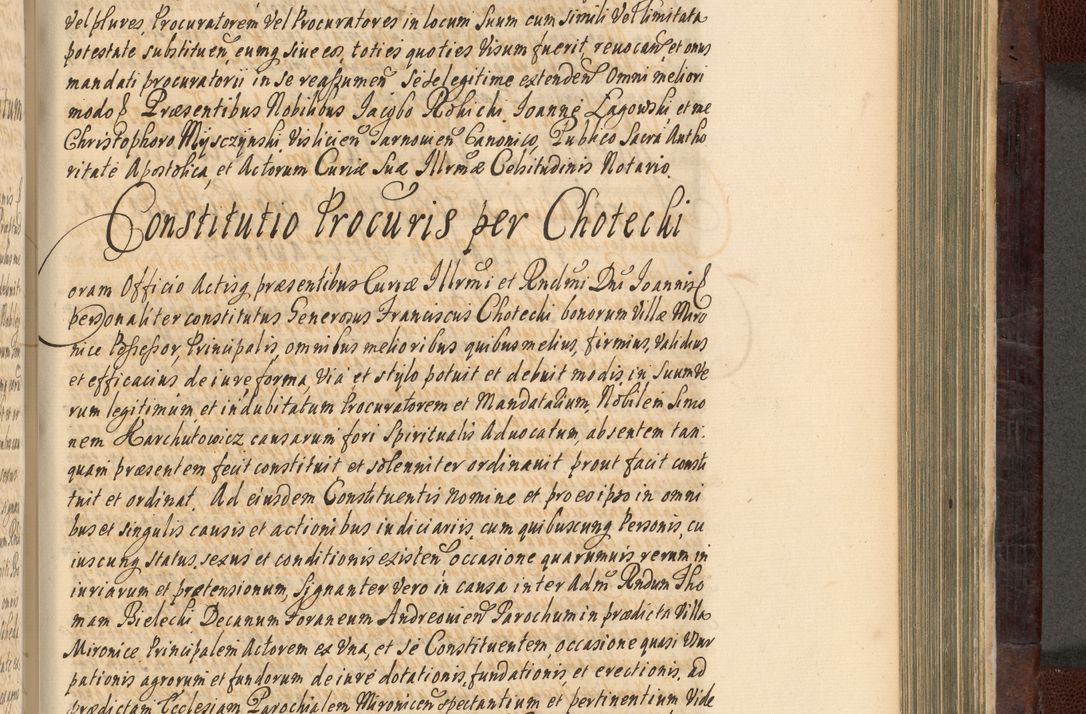 vel plures, Procuratorem vel Procuratores in locum suum cum simili vel limitata
potestate substituen, eumq siue eos, toties quoties visum fuerit, reuocan, et onus
mandati procuratorij in se reassumen Sese legitime extenden Omni meliori
modo Præsentibus Nobilibus Jacobo Joanne Łagowski, et me
Christophoro Mysczynski Visliciẽn Tarnouien Canonico, Publico Sacra Autho
ritate Apostolica, et Actorum Curiæ Suæ Illrmæ Celsitudinis Notario.
Constitutio Procuris per Chotecki
oram Officio Actisq præsentibus Curiæ Illrmi et Rndmi Dni Joannis
personaliter constitutus Generosus Franciscus Chotecki bonorum Villæ Miro
nice Possessor, Principalis, omnibus melioribus quibus melius, firmius, validius
et efficacius de iure forma, via et stylo potuit et debuit modis, in suum ve
rum legitimum et indubitatum Procuratorem et Mandatarium, Nobilem Simo
nem Karchutowicz causarum fori Spiritualis Aduocatum, absentem tan.
quam præsentem fecit constituit et solenniter ordinauit prout facit consti
tuit et ordinat. Ad eiusdem Constituentis nomine et pro eo ipso in omni
bus et singulis causis et actionibus iudiciariis, cum quibuscunq Personis, cu
iuscunq status, sexus et conditionis existen occasione quarumuis rerum in
iuriarum et prætensionum, signanter vero in causa inter Adm Rndum Tho
mam Bielecki Decanum Foraneum Andreouien Parochum in prædicta Villa
Mironice Principalem Actorem ex una, et se Constituentem, occasione quasi Usur
pationis agrorum et fundorum de iure dotationis, fundationis et erectionis, ad
prædictam Ecclesiam Parochialem Mironicen spectantium et pertinentium Vide